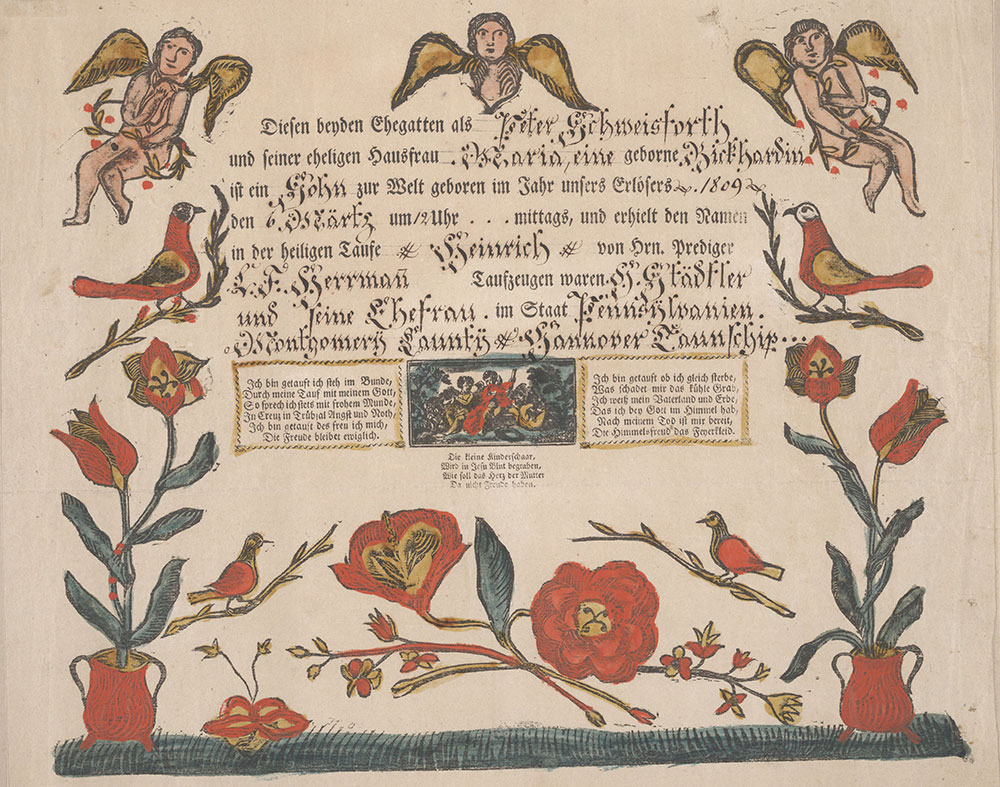 Diesen beyden Ehegatten als Peter Schweisforth
und seiner eheligen Hausfrau Maria, eine geborne Bickhardin
ist ein Sohn zur Welt geboren im Jahr unsers Erlösers 1809
den 6 Märtz um 12 Uhr . . . mittags, und erhielt den Namen
in der heiligen Taufe Heinrich von Hrn. Prediger
L. F. Herrman̄ Taufzeugen waren H. Städtler
und seine Ehefrau. im Staat Pennsylvanien.
Montgomery Caunty Hannover Taunschip...
Ich bin getauft ich steh im Bunde,
Durch meine Tauf mit meinem Gott,
So sprech ich stets mit frohem Munde,
In Creuz in Trübsal Angst und Noth,
Ich bin getauft des freu ich mich,
Die Freude bleibet ewiglich.
Ich bin getauft ob ich gleich sterbe,
Was schadet mir das kühle Grab,
Ich weiß mein Vaterland und Erbe,
Das ich bey Gott im Himmel hab,
Nach meinem Tod ist mir bereit,
Die Himmelsfreud das Feyerkleid.
Die kleine Kinderschaar,
Wird in Jesu Blut begraben,
Wie soll das Herz der Mutter
Da nicht Freude haben.